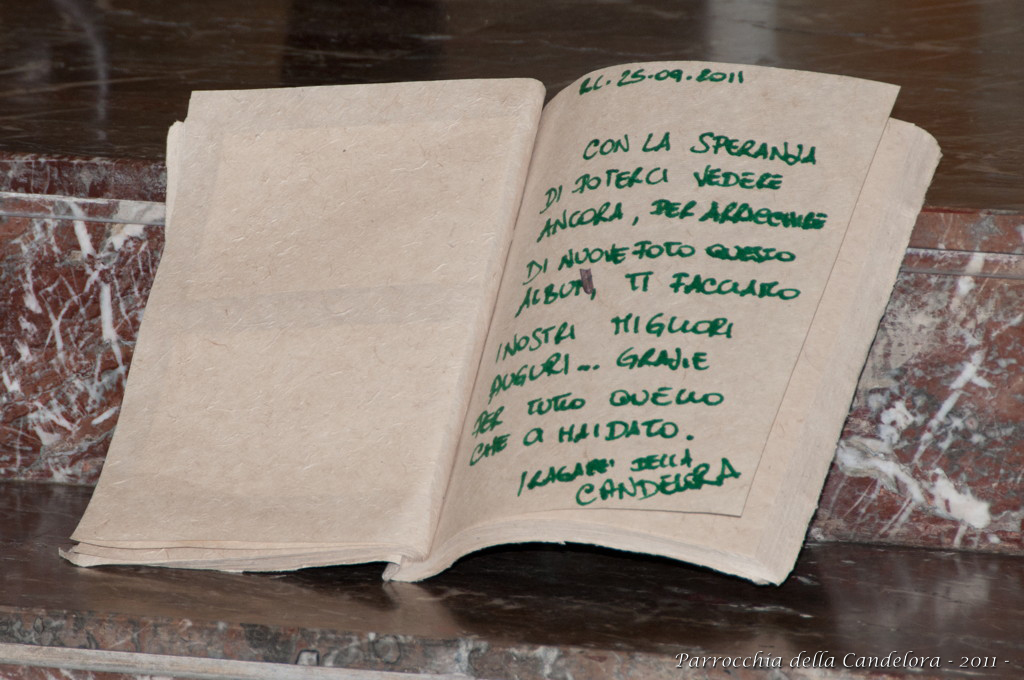 RC. 25.09.2011
CON LA SPERANZA
DI POTERCI VEDERE
ANCORA, PER ARRICCHIRE
DI NUOVE FOTO QUESTO
ALBUM, TI FACCIAMO
I NOSTRI MIGLIORI
AUGURI... GRAZIE
PER TUTTO QUELLO
CHE CI HAI DATO.
I RAGAZZI DELLA
CANDELORA
Parrocchia della Candelora - 2011 -